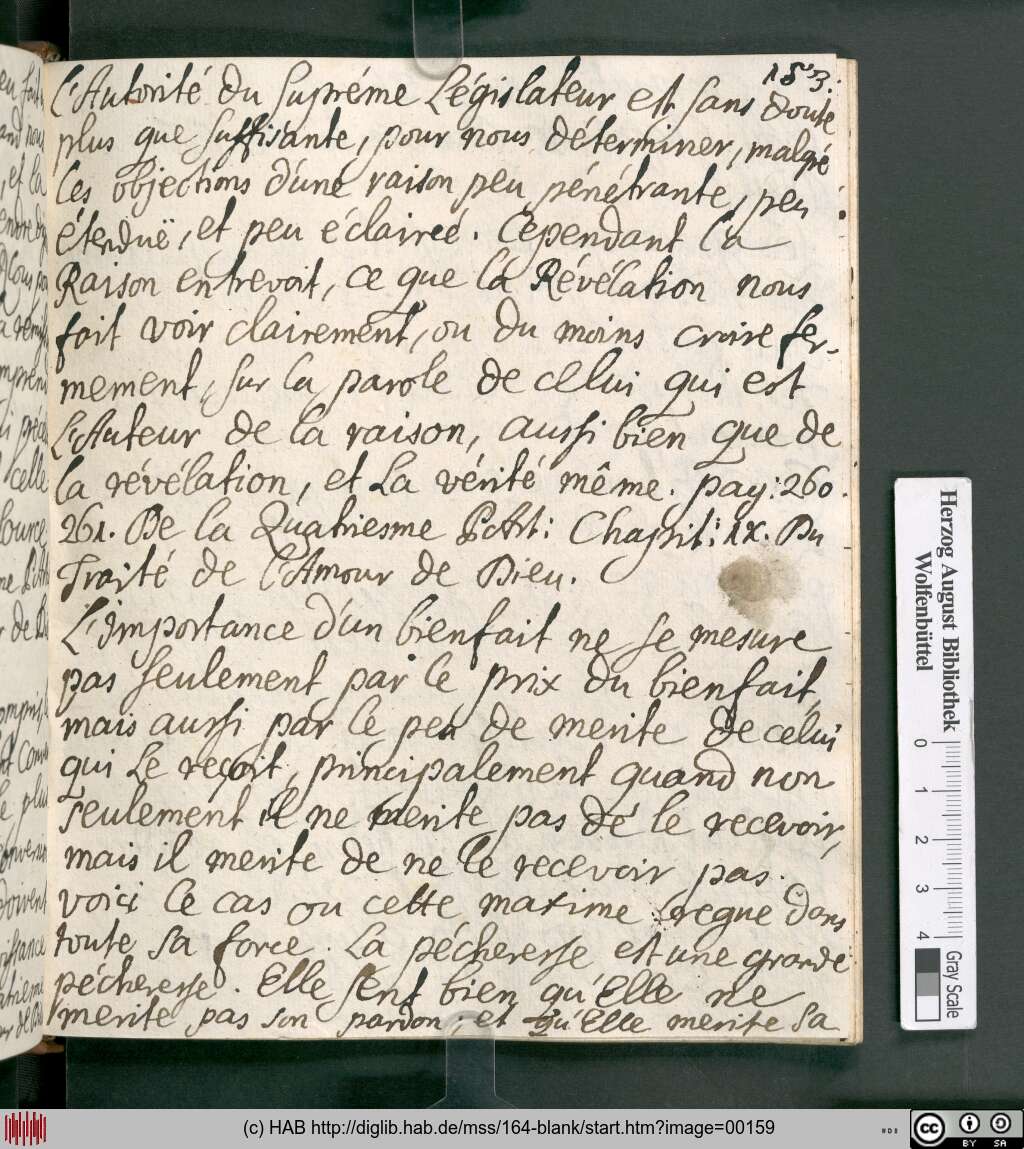 153.
L'Autorité du Supréme Législateur est sans doute
plus que suffisante, pour nous déterminer, malgré
les objections d'une raison peu pénétrante, peu
étenduë, et peu éclaireé. Cependant la
Raison entrevoit, ce que la Révélation nous
fait voir clairement, ou du moins croire fer-
mement, sur la parole de celui qui est
L'Auteur de la raison, aussi bien que de
la révélation, et La vérité même. pag: 260.
261. De la Quatriesme Part: Chapit: IX. Du
Traité de l'Amour de Dieu.
L'Importance d'un bienfait ne se mesure
pas seulement par le prix du bienfait,
mais aussi par le peu de merite de celui
qui Le reçoit, principalement quand non
seulement il ne merite pas de le recevoir,
mais il merite de ne le recevoir pas.
voici le cas ou cette maxime regne dans
toute sa force. La pécheresse est une grande
pécheresse. Elle sent bien qu'Elle ne
merite pas son pardon, et qu'Elle merite sa
Herzog August Bibliothek
Wolfenbüttel
0 1 2 3 4
Gray Scale
(c) HAB http://diglib.hab.de/mss/164-blank/start.htm?image=00159
cc BY SA